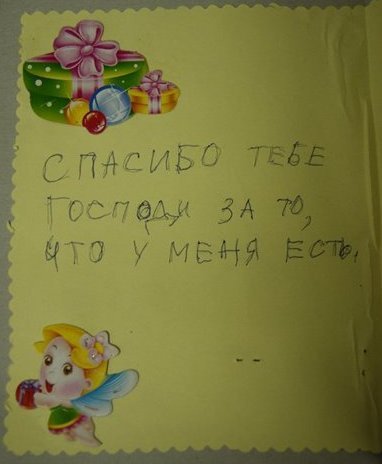 СПАСИБО ТЕБЕ
ГОСПОДИ ЗА ТО,
ЧТО У МЕНЯ ЕСТЬ.
--